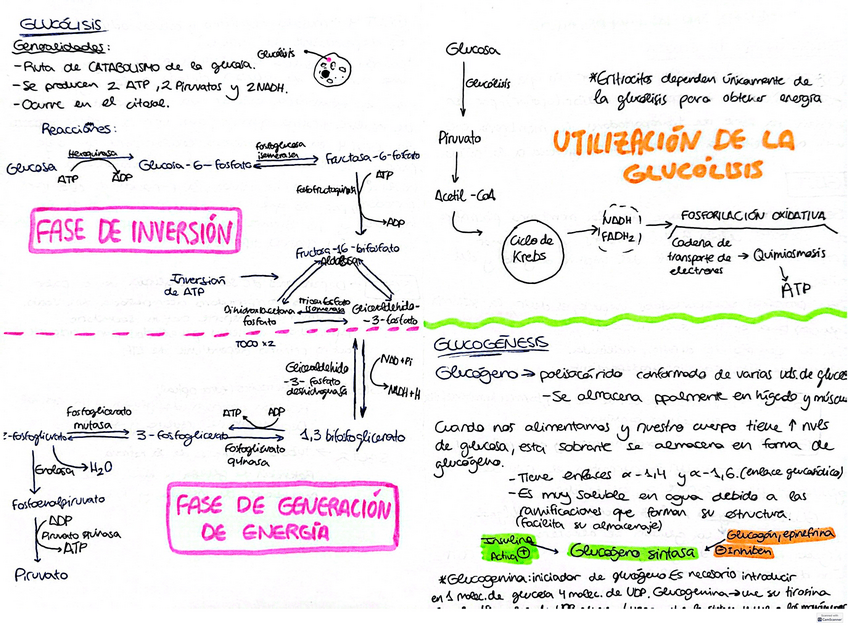 GLUCÓLISIS
Generalidades:
-Ruta de CATABOLISMO de la glucosa.
-Se producen 2 ATP, 2 Piruvatos y 2 NADH.
-Ocurre en el citosol.
Glucólisis
Reacciones:
Glucosa
Hexoquinasa
ATP
ADP
Glucosa-6-fosfato
Fosfoglucosa
isomerasa
Fructosa-6-fosfato
fosfofructoquinasa
ATP
ADP
FASE DE INVERSIÓN
Fructosa-1,6-bifosfato
Aldolasa
Inversión
de ATP
Dihidroxiacetona
fosfato
Triosa fosfato
isomerasa
Gliceraldehido-
-3-fosfato
TODO x2
Gliceraldehido
-3-fosfato
deshidrogenasa
NAD+Pi
NADH+H
1,3 bifosfoglicerato
ATP
ADP
Fosfoglicerato
quinasa
3-fosfoglicerato
Fosfoglicerato
mutasa
-fosfoglicerato
Enolasa
H2O
Fosfoenolpiruvato
ADP
Piruvato quinasa
ATP
Piruvato
FASE DE GENERACIÓN
DE ENERGÍA
Glucosa
Glucólisis
Piruvato
Acetil-CoA
*Eritrocitos dependen únicamente de
la glucólisis para obtener energía
UTILIZACIÓN DE LA
GLUCÓLISIS
Ciclo de
Krebs
NADH
FADH2
FOSFORILACIÓN OXIDATIVA
Cadena de
transporte de
electrones
Quimiosmosis
ATP
GLUCOGÉNESIS
Glucógeno → polisacárido conformado de varias uds. de glucos
-Se almacena ppalmente en hígado y múscu
Cuando nos alimentamos y nuestro cuerpo tiene ↑ nvls
de glucosa, esta sobrante se almacena en forma de
glucógeno.
-Tiene enlaces α-1,4 y α-1,6. (enlace glucosídico)
-Es muy soluble en agua debido a las
ramificaciones que forman su estructura.
(facilita su almacenaje)
Insulina
Activa +
Glucógeno sintasa
Glucagón, epinefrina
- Inhiben
*Glucogenina: iniciador de glucógeno Es necesario introducir
en 1 molec. de glucosa 4 molec. de UDP. Glucogenina → une su tirosina
CamScanner